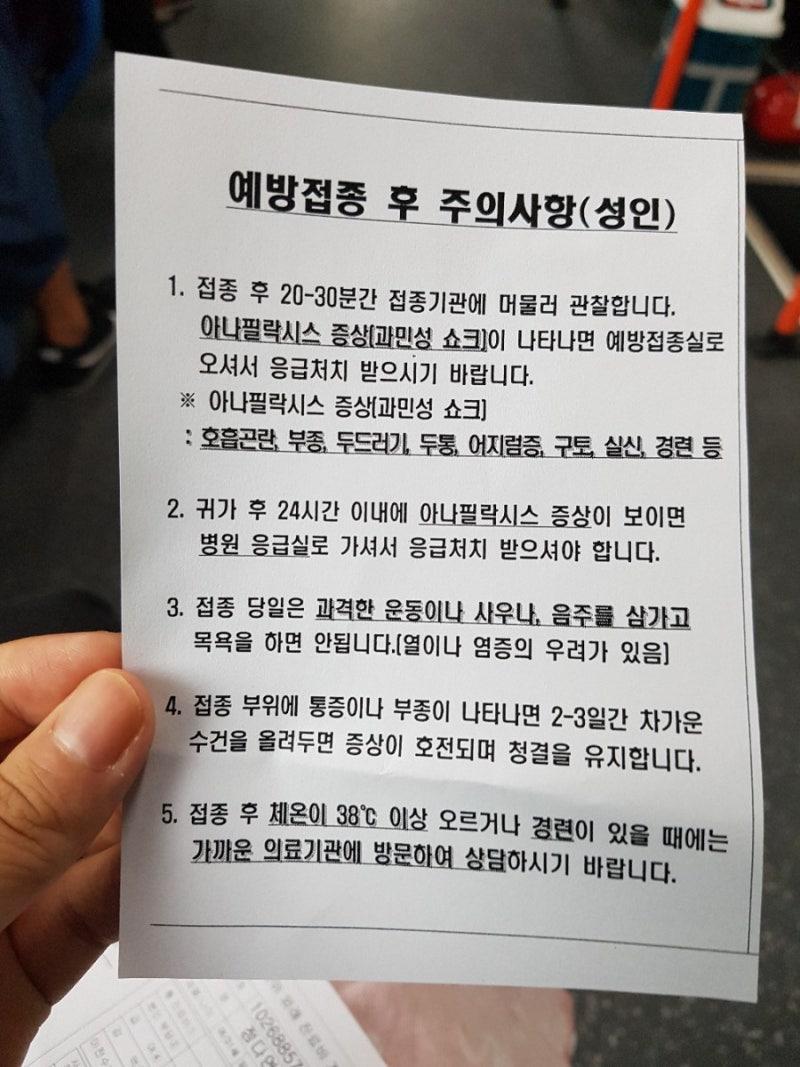 예방접종 후 주의사항(성인)
1. 접종 후 20-30분간 접종기관에 머물러 관찰합니다.
아나필락시스 증상(과민성 쇼크)이 나타나면 예방접종실로
오셔서 응급처치 받으시기 바랍니다.
※ 아나필락시스 증상(과민성 쇼크)
: 호흡곤란, 부종, 두드러기, 두통, 어지럼증, 구토, 실신, 경련 등
2. 귀가 후 24시간 이내에 아나필락시스 증상이 보이면
병원 응급실로 가셔서 응급처치 받으셔야 합니다.
3. 접종 당일은 과격한 운동이나 사우나, 음주를 삼가고
목욕을 하면 안됩니다.(열이나 염증의 우려가 있음)
4. 접종 부위에 통증이나 부종이 나타나면 2-3일간 차가운
수건을 올려두면 증상이 호전되며 청결을 유지합니다.
5. 접종 후 체온이 38℃ 이상 오르거나 경련이 있을 때에는
가까운 의료기관에 방문하여 상담하시기 바랍니다.